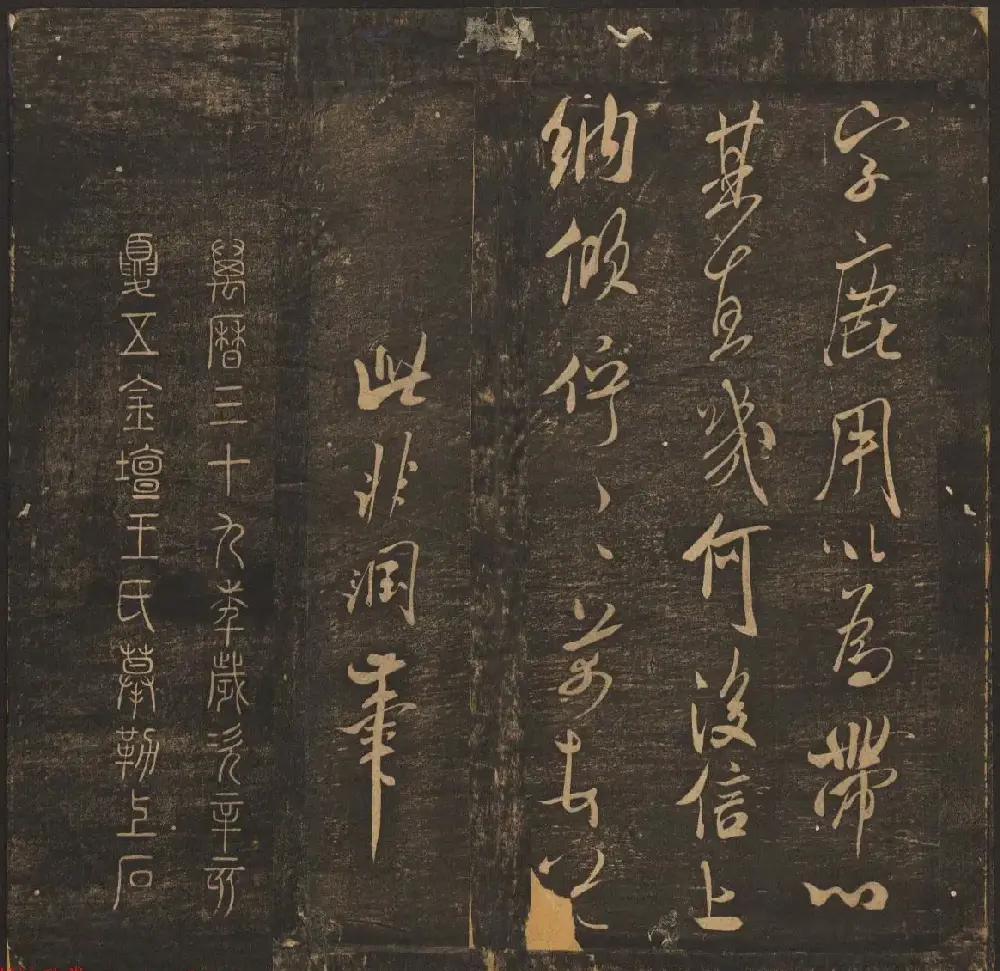 字鹿用以為帶
某直幾何後信上
納傾佇〻〻
此非潤筆
萬曆三十九年歲次辛亥
夏五金壇王氏摹勒上石